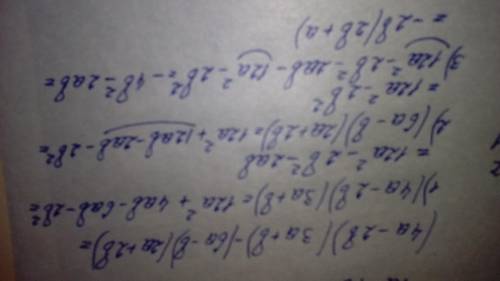 (4a-2b)(3a+b)-(6a-b)(2a+2b)=
1)(4a-2b)(3a+b)=12a²+4ab-6ab-2b²=
=12a²-2b²-2ab
2)(6a-b)(2a+2b)=12a²+12ab-2ab-2b²=
=12a²-2b²
3)12a²-2b²-2ab-12a²-2b²=-4b²-2ab=
=-2b(2b+a)